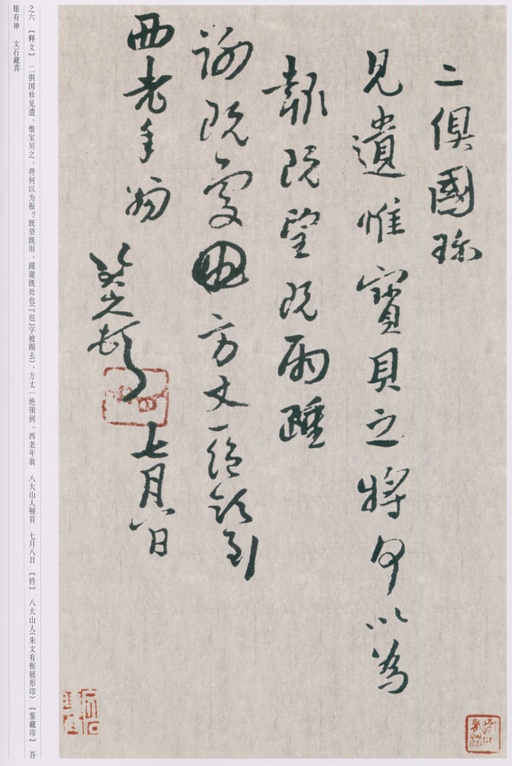 二俱國珎
見遺惟寶貝之將何以為
報既望既雨踵
謝既處也方丈一絕領到
西老年翁
八大山人頓首
七月八日
之六 【释文】 二俱国珍见遗、惟宝贝之、将何以为报？既望既雨、踵谢既处也(「也」字被圈去)、方丈一绝领到、西老年翁 八大山人顿首 七月八日 【钤】 八大山人(朱文有框屐形印) 【鉴藏印】 吾
眼有神 文石藏弆